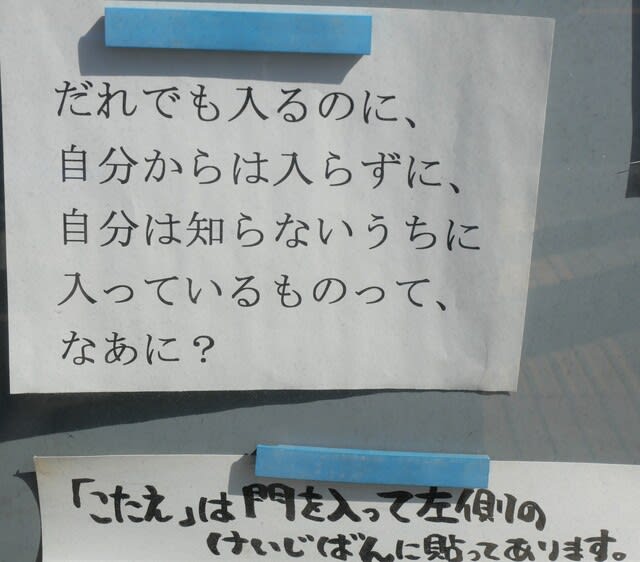 だれでも入るのに、
自分からは入らずに、
自分は知らないうちに
入っているものって、
なあに？
「こたえ」は門を入って左側の
けいじばんに貼ってあります。